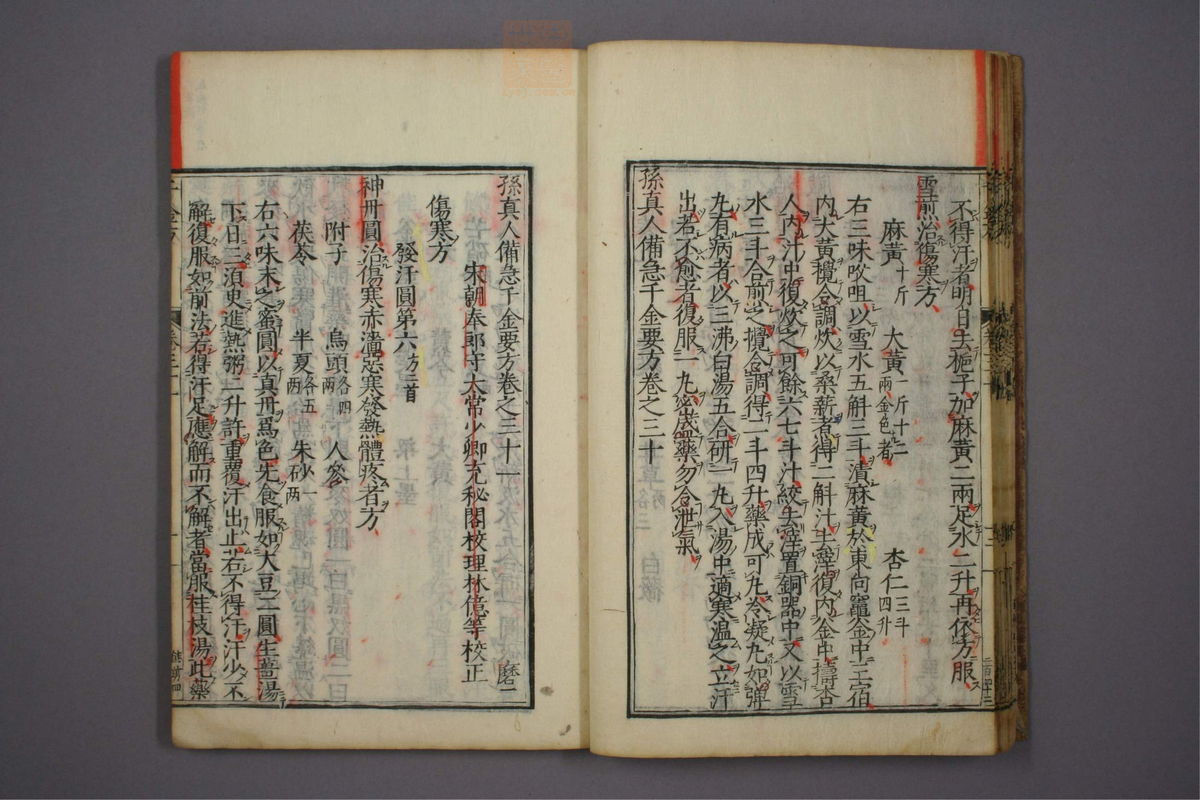 不得汗者明日去梔子加麻黃二兩足水二升再依方服
雪煎治傷寒方
麻黃十斤 大黃一斤十二兩金色者 杏仁三斗四升
右三味㕮咀以雪水五斛三斗漬麻黃於東向竈釜中三宿
內大黃攪令調炊以桑薪煮得二斛汁去滓復內釜中擣杏
人內汁中復炊之可餘六七斗汁絞去滓置銅器中又以雪
水三斗合前之攪令調得二斗四升藥成可丸冷凝丸如弾
丸有病者以三沸白湯五合研一丸入湯中適寒温之立汗
出若不愈者復服一丸密盛藥勿令泄氣
孫真人備急千金要方卷之三十
孫真人備急千金要方卷之三十一 磨二
宋朝奉郎守太常少卿充秘閣校理林億等校正
傷寒方
發汗圓第六方二首
神丹圓治傷寒赤濇惡寒發熱體疼者方
附子 烏頭各四兩 人參
茯苓 半夏各五兩 朱砂一兩
右六味末之蜜圓以真丹爲色先食服如大豆二圓生薑湯
下日三須臾進熱粥二升許重覆汗出止若不得汗汗少不
解復服如前法若得汗足應解而不解者當服桂枝湯此藥